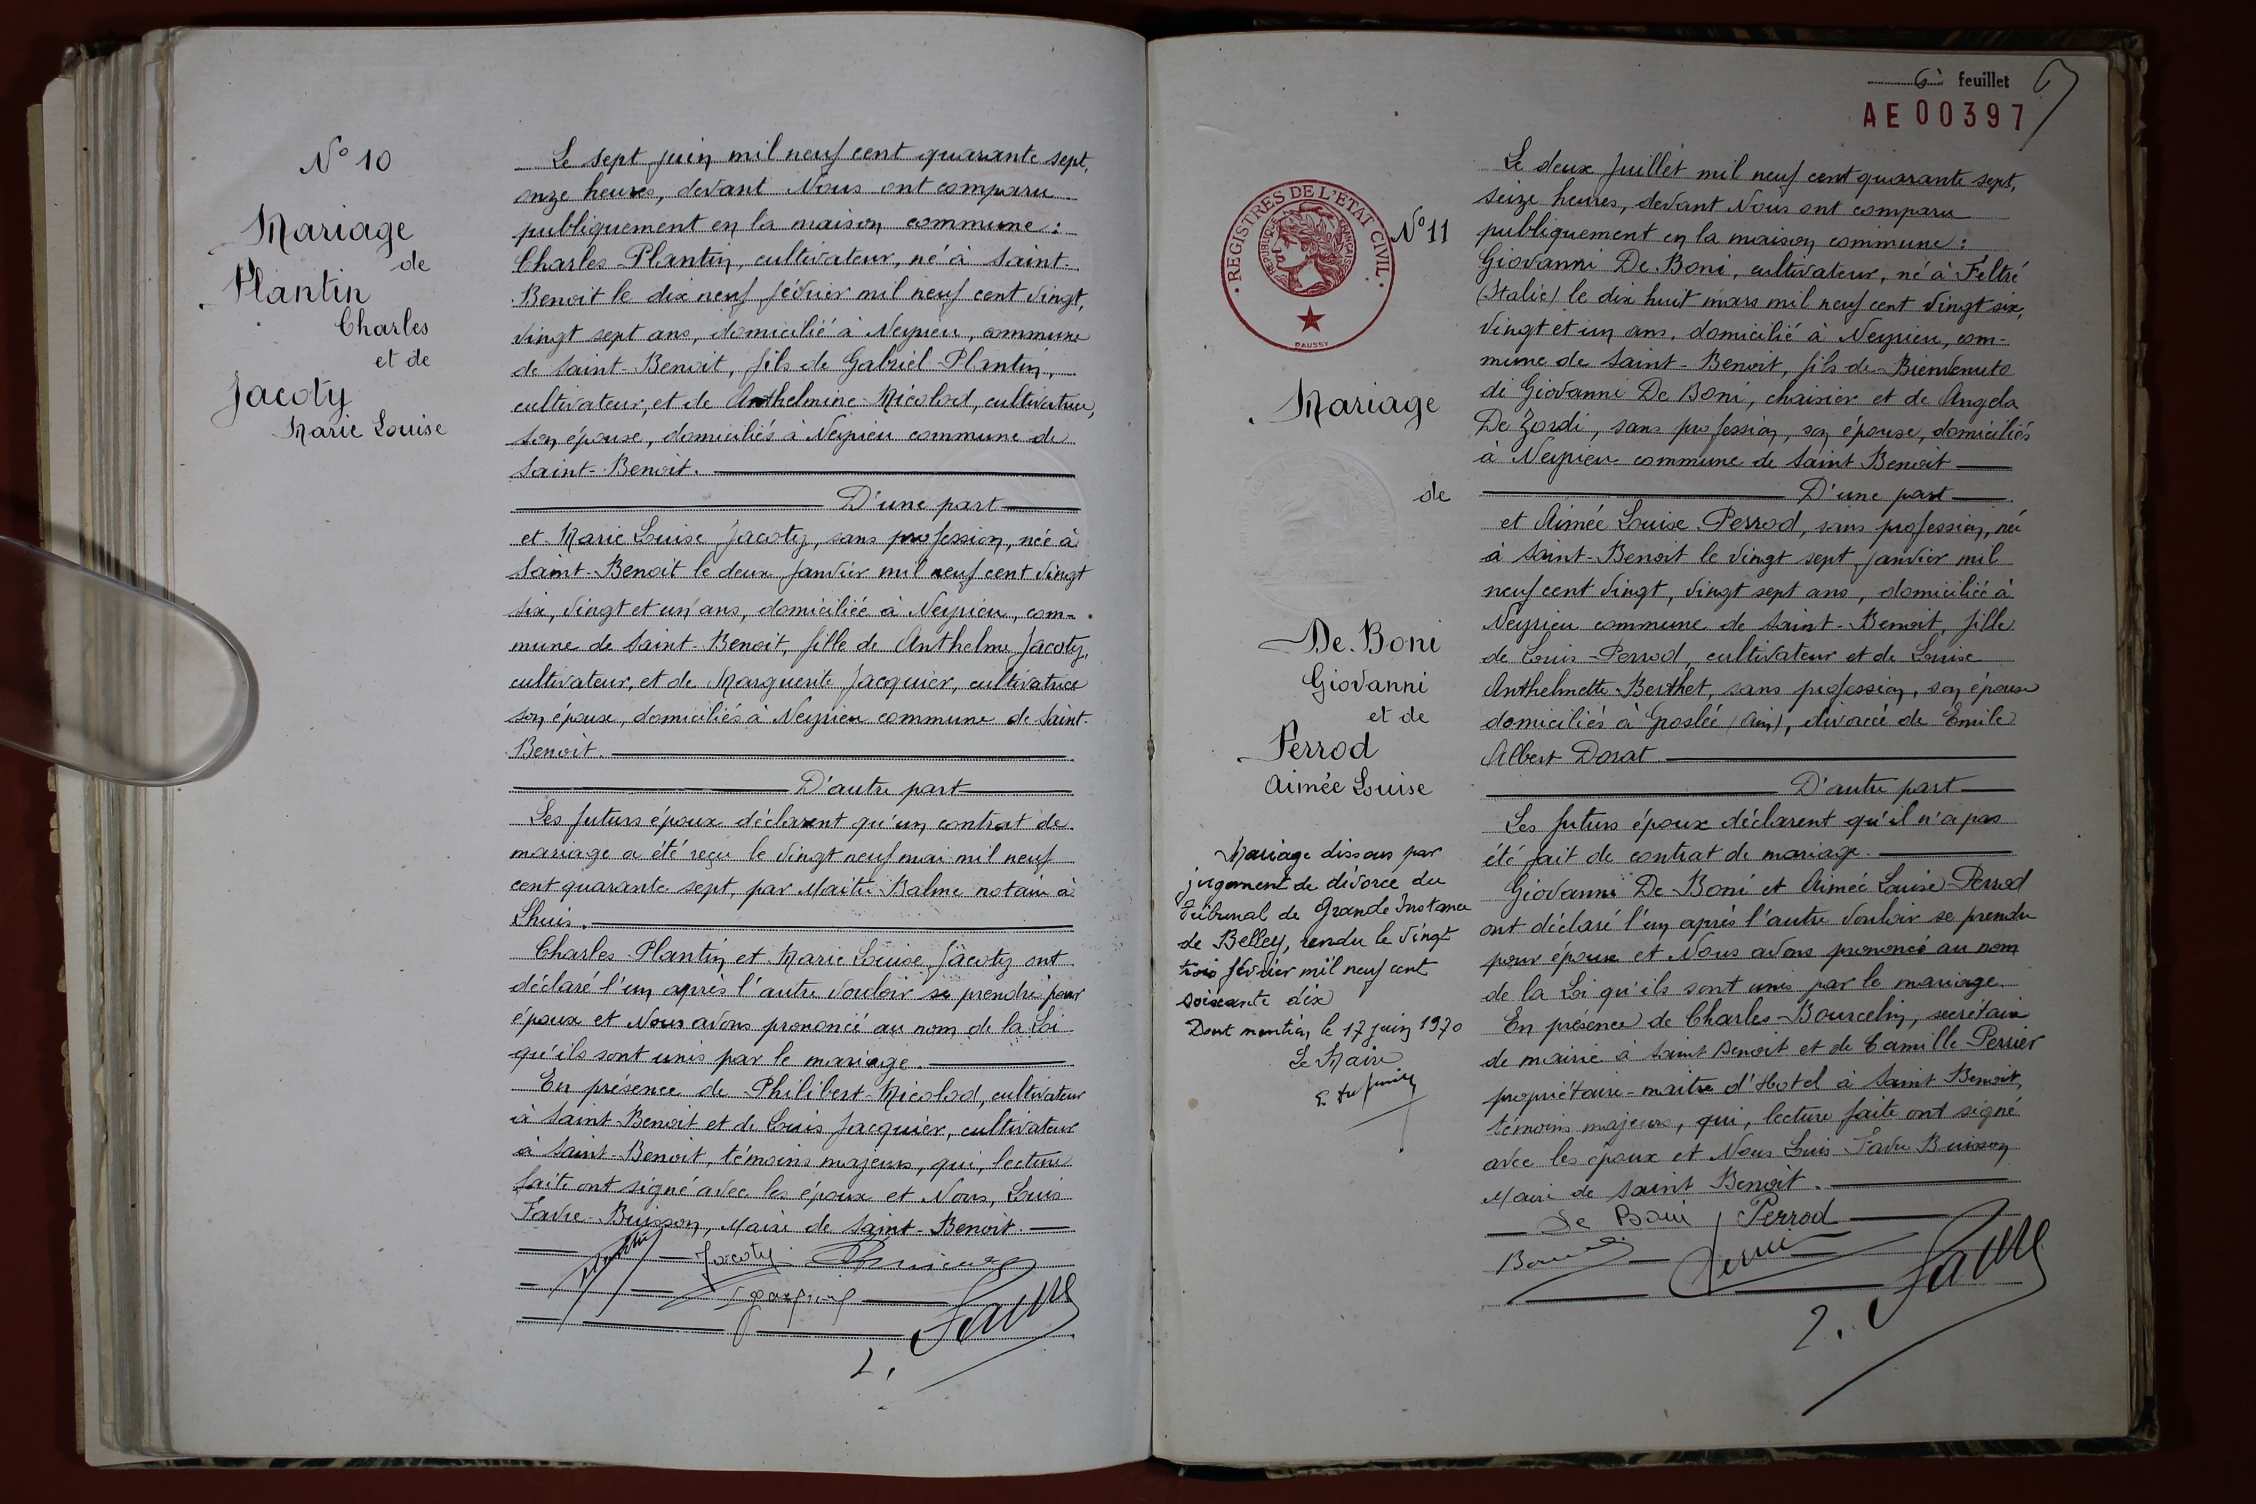 N° 10
Mariage
de
Plantin
Charles
et de
Jacoty
Marie Louise
Le sept juin mil neuf cent quarante sept,
onze heures, devant Nous ont comparu
publiquement en la maison commune :
Charles Plantin, cultivateur, né à Saint-
Benoit le dix neuf février mil neuf cent vingt,
vingt sept ans, domicilié à Neyrieu, commune
de Saint-Benoit, fils de Gabriel Plantin,
cultivateur, et de Anthelmine Micolod, cultivatrice,
son épouse, domiciliés à Neyrieu commune de
Saint-Benoit.
D'une part
et Marie Louise Jacoty, sans profession, née à
Saint-Benoit le deux janvier mil neuf cent vingt
six, vingt et un ans, domiciliée à Neyrieu, com-
mune de Saint-Benoit, fille de Anthelme Jacoty,
cultivateur, et de Marguerite Jacquier, cultivatrice
son épouse, domiciliés à Neyrieu commune de Saint-
Benoit.
D'autre part
Les futurs époux déclarent qu'un contrat de
mariage a été reçu le vingt neuf mai mil neuf
cent quarante sept, par Maître Balme notaire à
Lhuis.
Charles Plantin et Marie Louise Jacoty ont
déclaré l'un après l'autre vouloir se prendre pour
époux et Nous avons prononcé au nom de la Loi
qu'ils sont unis par le mariage.
En présence de Philibert Micolod, cultivateur
à Saint Benoit et de Louis Jacquier, cultivateur
à Saint-Benoit, témoins majeurs, qui, lecture
faite ont signé avec les époux et Nous, Louis
Favre-Buisson, Maire de Saint-Benoit.
Plantin Jacoty
L. Favre
6è feuillet 6
AE 00397
REGISTRES DE L'ETAT CIVIL
REPUBLIQUE FRANÇAISE
DAUSSY
N° 11
Mariage
de
De Boni
Giovanni
et de
Perrod
Aimée Louise
Mariage dissous par
jugement de divorce du
Tribunal de Grande Instance
de Belley, rendu le vingt
trois février mil neuf cent
soixante dix
Dont mention le 17 juin 1970
Le Maire
Le deux Juillet mil neuf cent quarante sept,
seize heures, devant Nous ont comparu
publiquement en la maison commune :
Giovanni De Boni, cultivateur, né à Feltré
(Italie) le dix huit mars mil neuf cent vingt six,
vingt et un ans, domicilié à Neyrieu, com-
mune de Saint-Benoit, fils de Bienvenuto
di Giovanni De Boni, chaisier et de Angela
De Zordi, sans profession, son épouse, domiciliés
à Neyrieu commune de Saint Benoit
D'une part
et Aimée Louise Perrod, sans profession, née
à Saint-Benoit le vingt sept janvier mil
neuf cent vingt, vingt sept ans, domiciliée à
Neyrieu commune de Saint-Benoit, fille
de Louis Perrod, cultivateur et de Louise
Anthelmette Berthet, sans profession, son épouse
domiciliés à Groslée (Ain), divorcée de Emile
Albert Dorat
D'autre part
Les futurs époux déclarent qu'il n'a pas
été fait de contrat de mariage.
Giovanni De Boni et Aimée Louise Perrod
ont déclaré l'un après l'autre vouloir se prendre
pour époux et Nous avons prononcé au nom
de la Loi qu'ils sont unis par le mariage.
En présence de Charles Bourcelin, secrétaire
de mairie à Saint Benoit et de Camille Perrier
propriétaire-maître d'Hotel à Saint Benoit,
témoins majeurs, qui, lecture faite ont signé
avec les époux et Nous Louis Favre Buisson
Maire de Saint Benoit.
De Boni Perrod
L. Favre